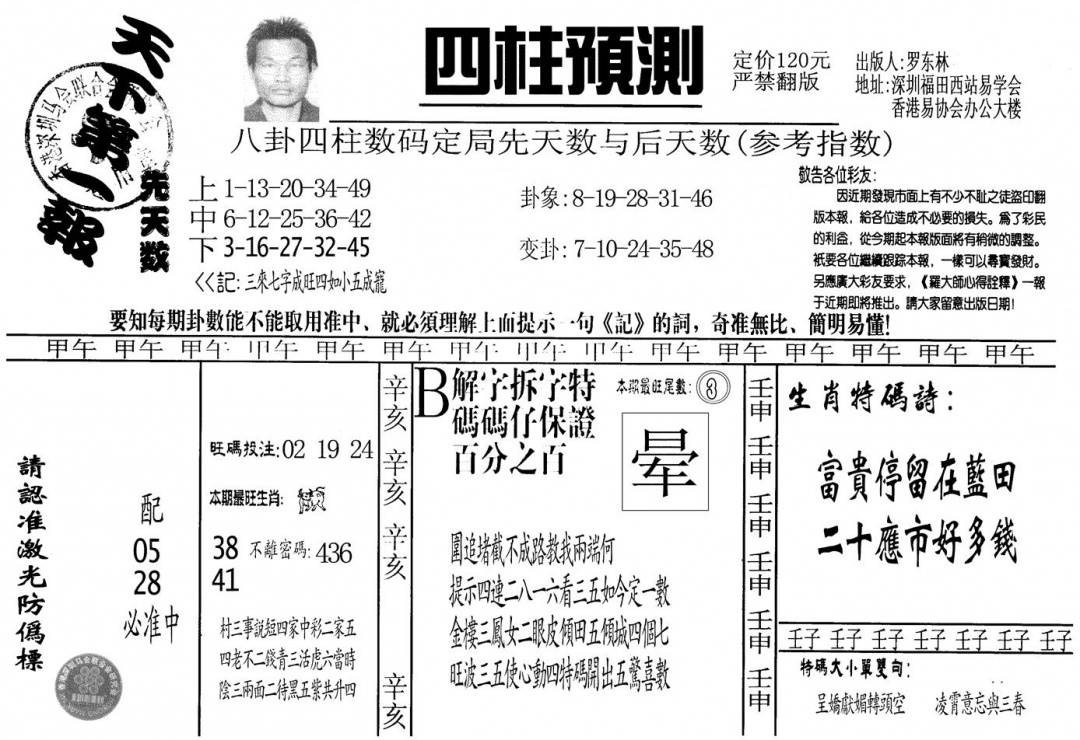 天下第一報
四柱預測
定价120元
严禁翻版
出版人:罗东林
地址:深圳福田西站易学会
香港易协会办公大楼
八卦四柱数码定局先天数与后天数(参考指数)
先天数
上 1-13-20-34-49
中 6-12-25-36-42
下 3-16-27-32-45
卦象:8-19-28-31-46
变卦:7-10-24-35-48
<<記:三來七字成旺四如小五成籠
敬告各位彩友:
因近期發現市面上有不少不耻之徒盜印翻
版本報,給各位造成不必要的損失。爲了彩民
的利益,從今期起本報版面將有稍微的調整。
衹要各位繼續跟踪本報,一樣可以尋寶發財。
另應廣大彩友要求,《羅大師心得詮釋》一報
于近期即將推出。請大家留意出版日期!
要知每期卦數能不能取用准中、就必須理解上面提示一句《記》的詞,奇准無比、簡明易懂!
甲午 甲午 甲午 甲午 甲午 甲午 甲午 甲午 甲午 甲午 甲午 甲午 甲午 甲午 甲午
請認准激光防僞標
配
05
28
必准中
旺碼投注:02 19 24
本期最旺生肖:
38 不離密碼:436
41
村三事説短四家中彩二家五
四老不二錢青三活虎六當時
陰三兩面二待黑五紫共升四
辛亥
辛亥
辛亥
辛亥
B解字拆字特
碼碼仔保證
百分之百
本期最旺尾數:3
暈
圍追堵截不成路教我兩端何
提示四連二八一六看三五如今定一數
金樓三鳳女二眼皮傾田五傾城四個七
旺波三五使心動四特碼開出五驚喜數
壬申
壬申
壬申
壬申
壬申
壬申
生肖特碼詩:
富貴停留在藍田
二十應市好多錢
壬子 壬子 壬子 壬子 壬子 壬子 壬子
特碼大小單雙句:
呈嬌獻媚轉頭空 凌霄意忘與三春